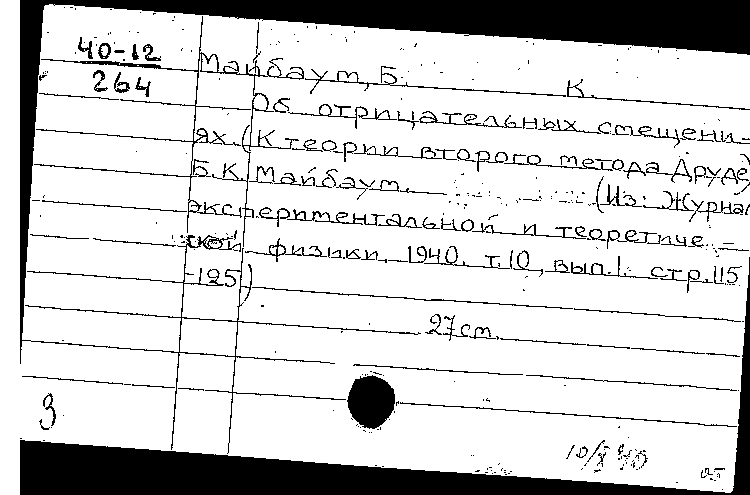 40-12
264
Майбаум, Б. К.
Об отрицательных смещени-
ях. (К теории второго метода Друде)
Б.К. Майбаум. (Из: Журнал
экспериментальной и теоретиче-
ской физики, 1940, т.10, вып.1. стр.115
-125)
27 cm.
3
10/X 40